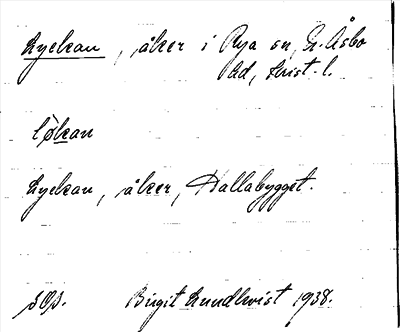 Lyckan, åker i Rya sn, S. Åsbo
hd, Krist. l.
løkan
Lyckan, åker, Hallabygget.
Birgit Lundkvist 1938.